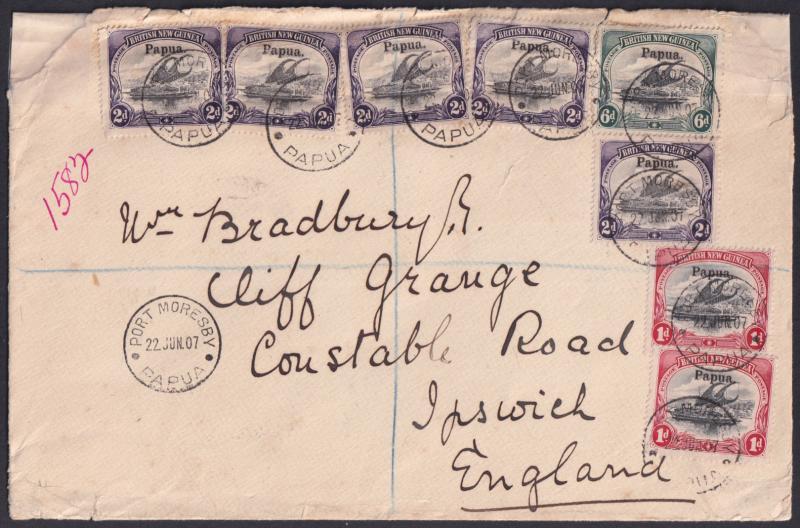 BRITISH NEW GUINEA
POSTAGE POSTAGE
Papua.
2d 2d
BRITISH NEW GUINEA
Papua.
2d 2d
BRITISH NEW GUINEA
Papua.
2d 2d
BRITISH NEW GUINEA
Papua.
2d 2d
BRITISH NEW GUINEA
Papua.
6d 6d
PAPUA
PAPUA
PAPUA
22 JUN.07
BRITISH NEW GUINEA
Papua.
2d 2d
PORT MORESBY
22 JUN.07
1583
Wm Bradbury Jr.
Cliff Grange
Constable Road
Ipswich
England
PORT MORESBY
22 JUN.07
PAPUA
BRITISH NEW GUINEA
Papua.
1d 1d
22 JUN.07
BRITISH NEW GUINEA
Papua.
1d 1d